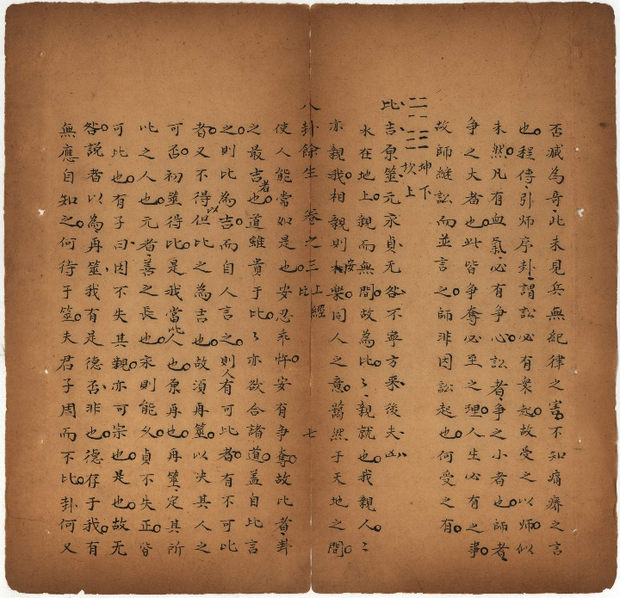 否臧為奇此未見兵無紀律之害不知痛癢之言
也程傳引師序卦謂訟必有衆起故受之以師似
未然凡有血氣必有爭心訟者爭之小者也師者
爭之大者也此皆爭奪必至之理人生必有之事
故師繼訟而並言之師非因訟起也何受之有
坤下
坎上
比吉原筮元永貞无咎不寧方來後夫凶
水在地上親而無間故為比比親就也我親人人
亦親我相親則相安樂同人之意藹然于天地之間
八卦餘生 卷之三 上經 比 七
使人能當如是也安忍乖忤安有爭奪故比者卦
之最吉者也道雖貴于比比亦欲合諸道蓋自比言
之則比為吉而自人言之則人有可比者有不可比
者又不得但以比之為吉也故須再筮以決其人之
可否初筮得比是我當比人也原再也再筮定其所
比之人也元者善之長也永則能久貞不失正皆
可比也有子曰因不失其親亦可宗也是也故无
咎說者以為再筮我有是德否非也德存于我有
無應自知之何待于筮夫君子周而不比卦何又